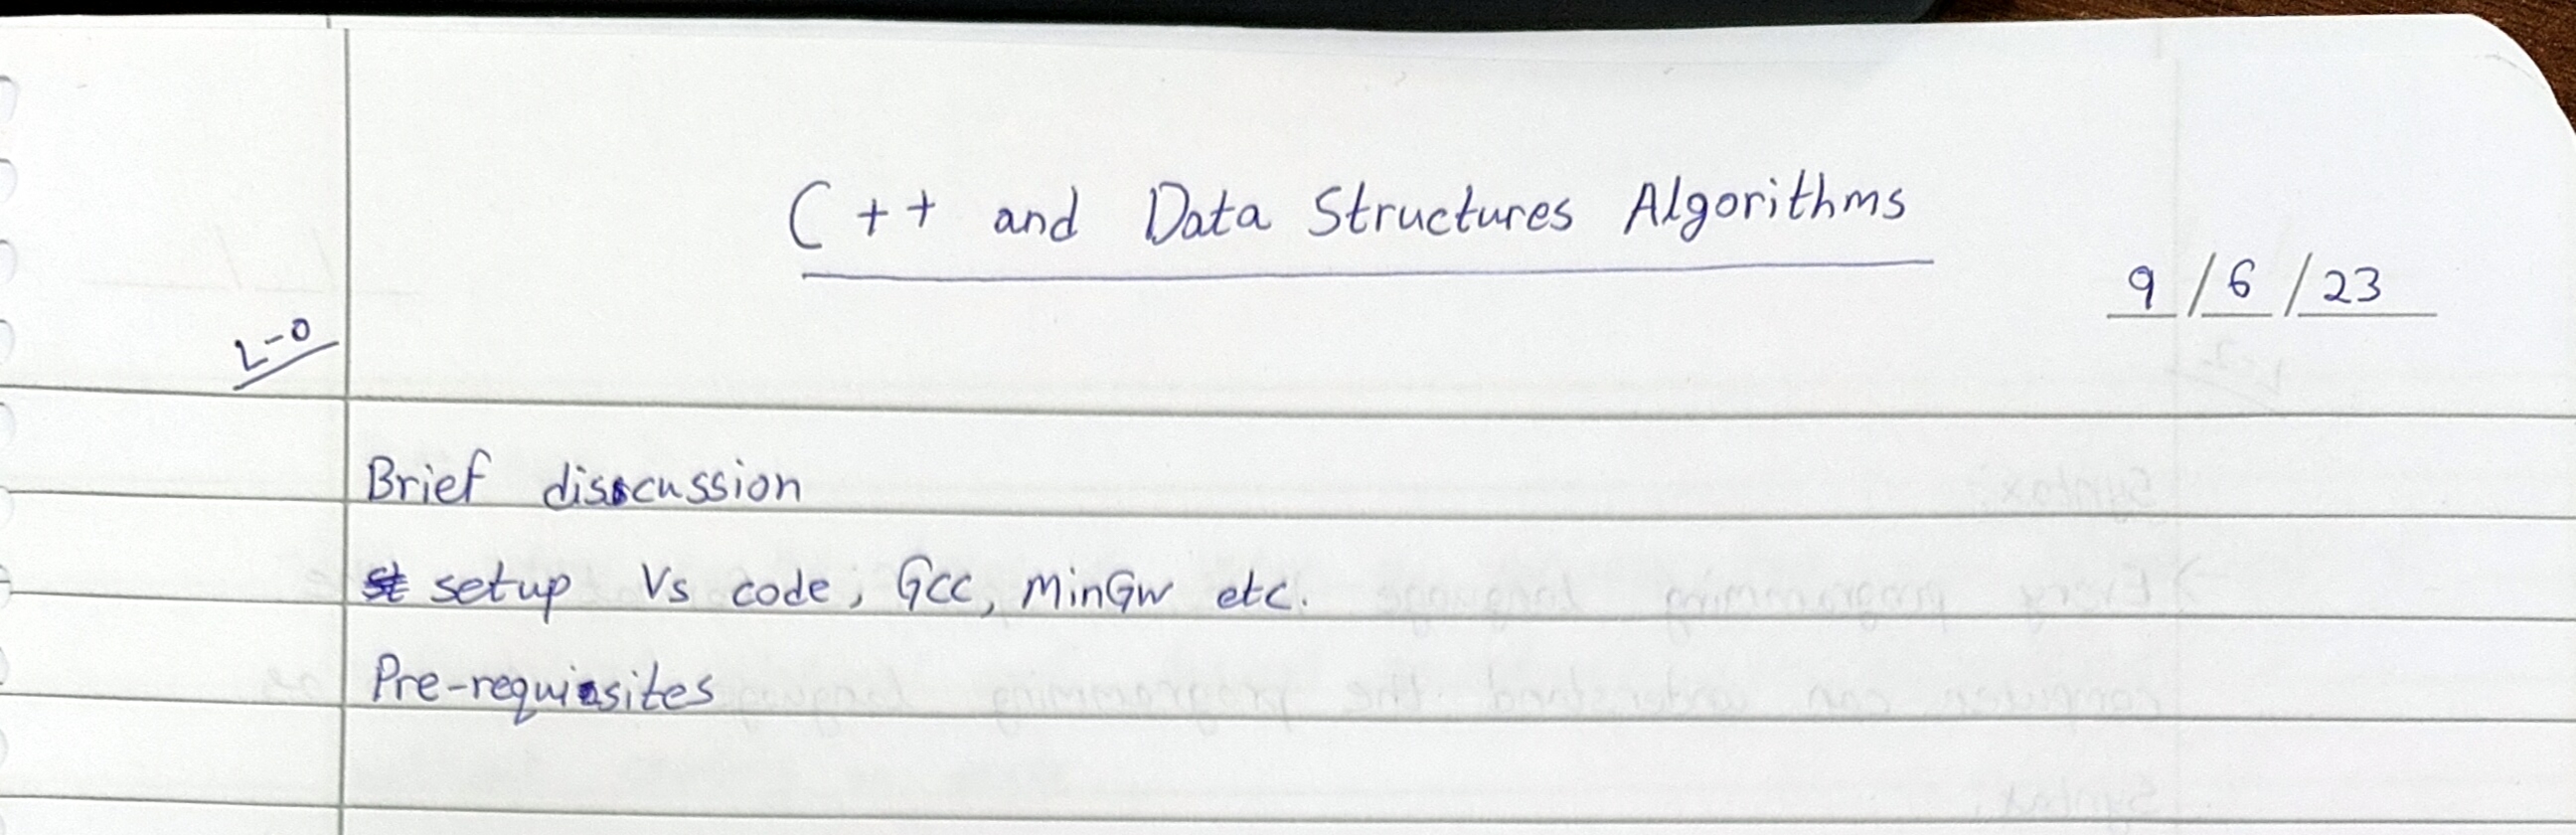 C++ and Data Structures Algorithms
9/6/23
L-0
Brief discussion
setup Vs code, Gcc, MinGw etc.
Pre-requisites